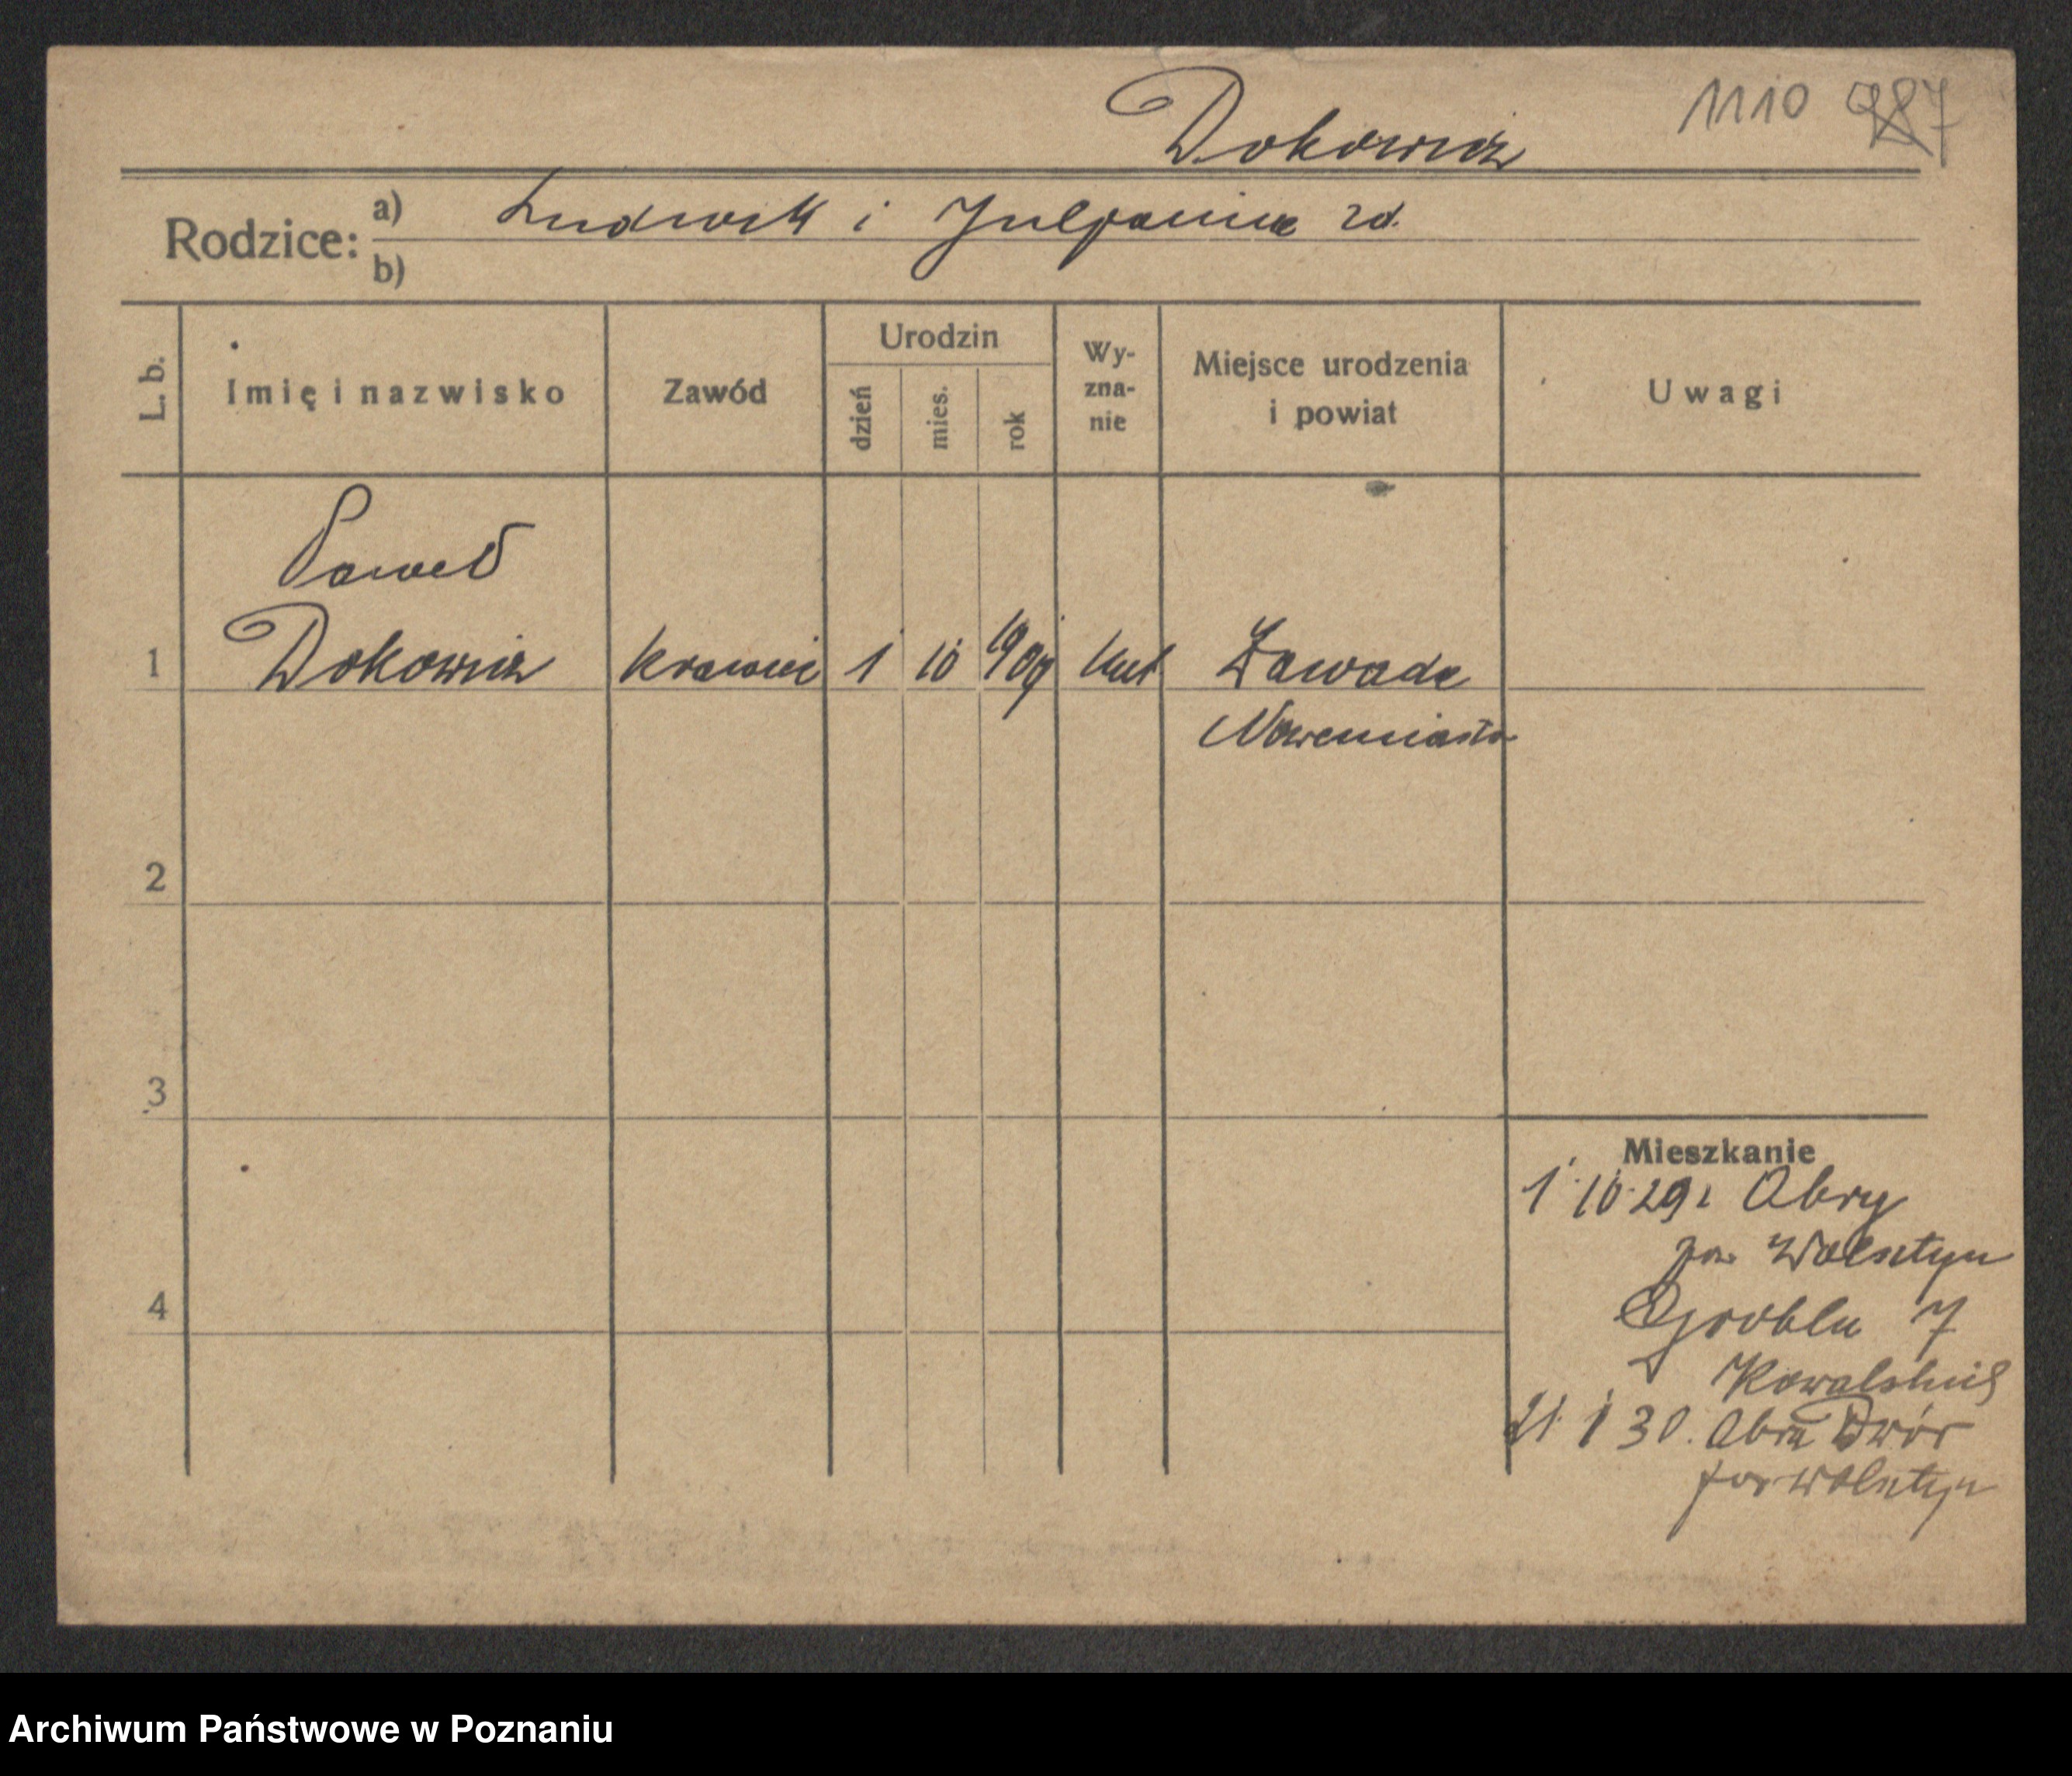 1110 987
Dokowicz
Rodzice: a) Ludwik i Julyanna zd.
b)
L. b.
Imię i nazwisko
Zawód
Urodzin
dzień
mies.
rok
Wy-
zna-
nie
Miejsce urodzenia
i powiat
Uwagi
Paweł
1 Dokowicz krawiec 1 10 1909 kat Zawada
Nowemiasto
2
3
4
Mieszkanie
1 10 29 z Obry
pow Wolsztyn
Grobla 7
Kowalski
21 1 30. Obra Dwór
pow Wolsztyn
Archiwum Państwowe w Poznaniu